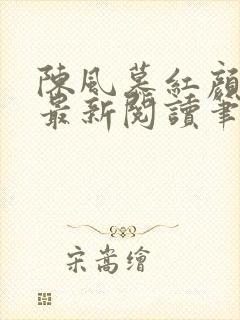 陳風慕紅顏
最新閱讀筆
宋嵩繪